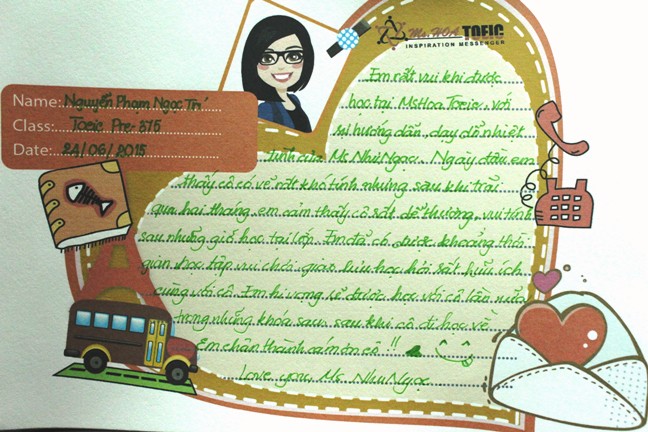 Ms. HOA TOEIC
INSPIRATION MESSENGER
Name: Nguyễn Phạm Ngọc Trí
Class: Toeic Pre-375
Date: 24/06/2015
Em rất vui khi được
học tại MsHoa Toeic, với
sự hướng dẫn, dạy dỗ nhiệt
tình của Ms. Như Ngọc. Ngày đầu em
thấy cô có vẻ rất khó tính nhưng sau khi trải
qua hai tháng em cảm thấy cô rất dễ thương, vui tính
sau những giờ học tại lớp. Em đã có được khoảng thời
gian học tập vui chơi, giao lưu học hỏi rất hữu ích
cùng với cô. Em hi vọng sẽ được học với cô lần nữa
trong những khóa sau, sau khi cô đi học về.
Em chân thành cám ơn cô !!
Love you, Ms. Như Ngọc